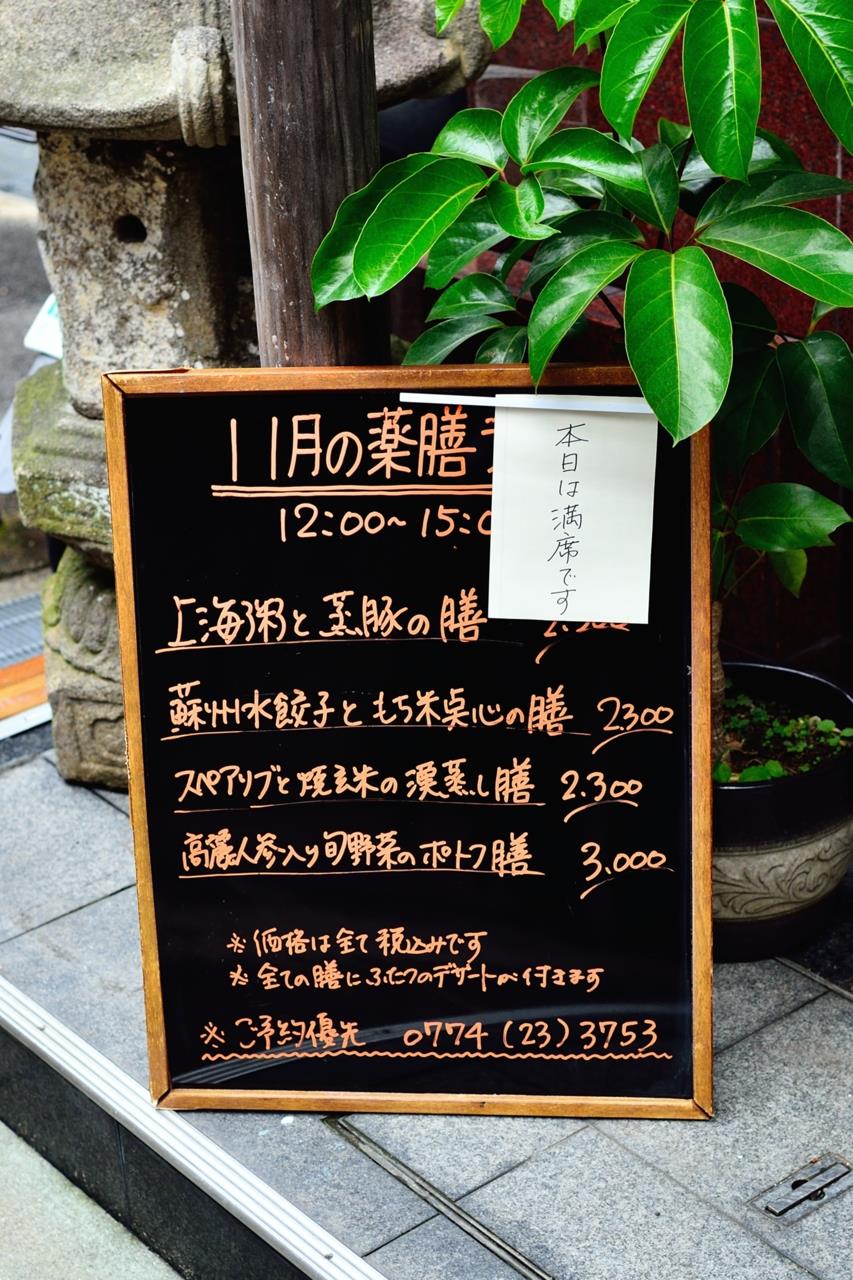 11月の薬膳
12:00~15:0
本日は満席です
上海粥と蒸豚の膳
蘇州水餃子ともち米点心の膳 2300
スペアリブと焼玄米の漢蒸し膳 2.300
高麗人参入り旬野菜のポトフ膳 3.000
※価格は全て税込みです
※全ての膳にふたつのデザートが付きます
※ご予約優先 0774(23)3753